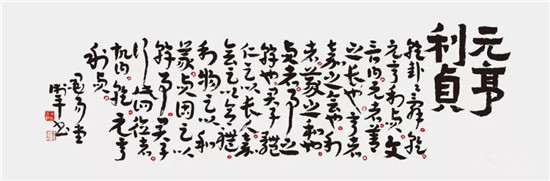 元亨
利貞
乾卦之辞乾
元亨利貞文
言曰元者善
之長也亨者
嘉之会也利
者義之和也
貞者事之
幹也君子體
仁足以長人嘉
会足以合禮
利物足以和
義貞固足以
幹事君子
行此四德者
故曰乾元亨
利貞
易堂
书